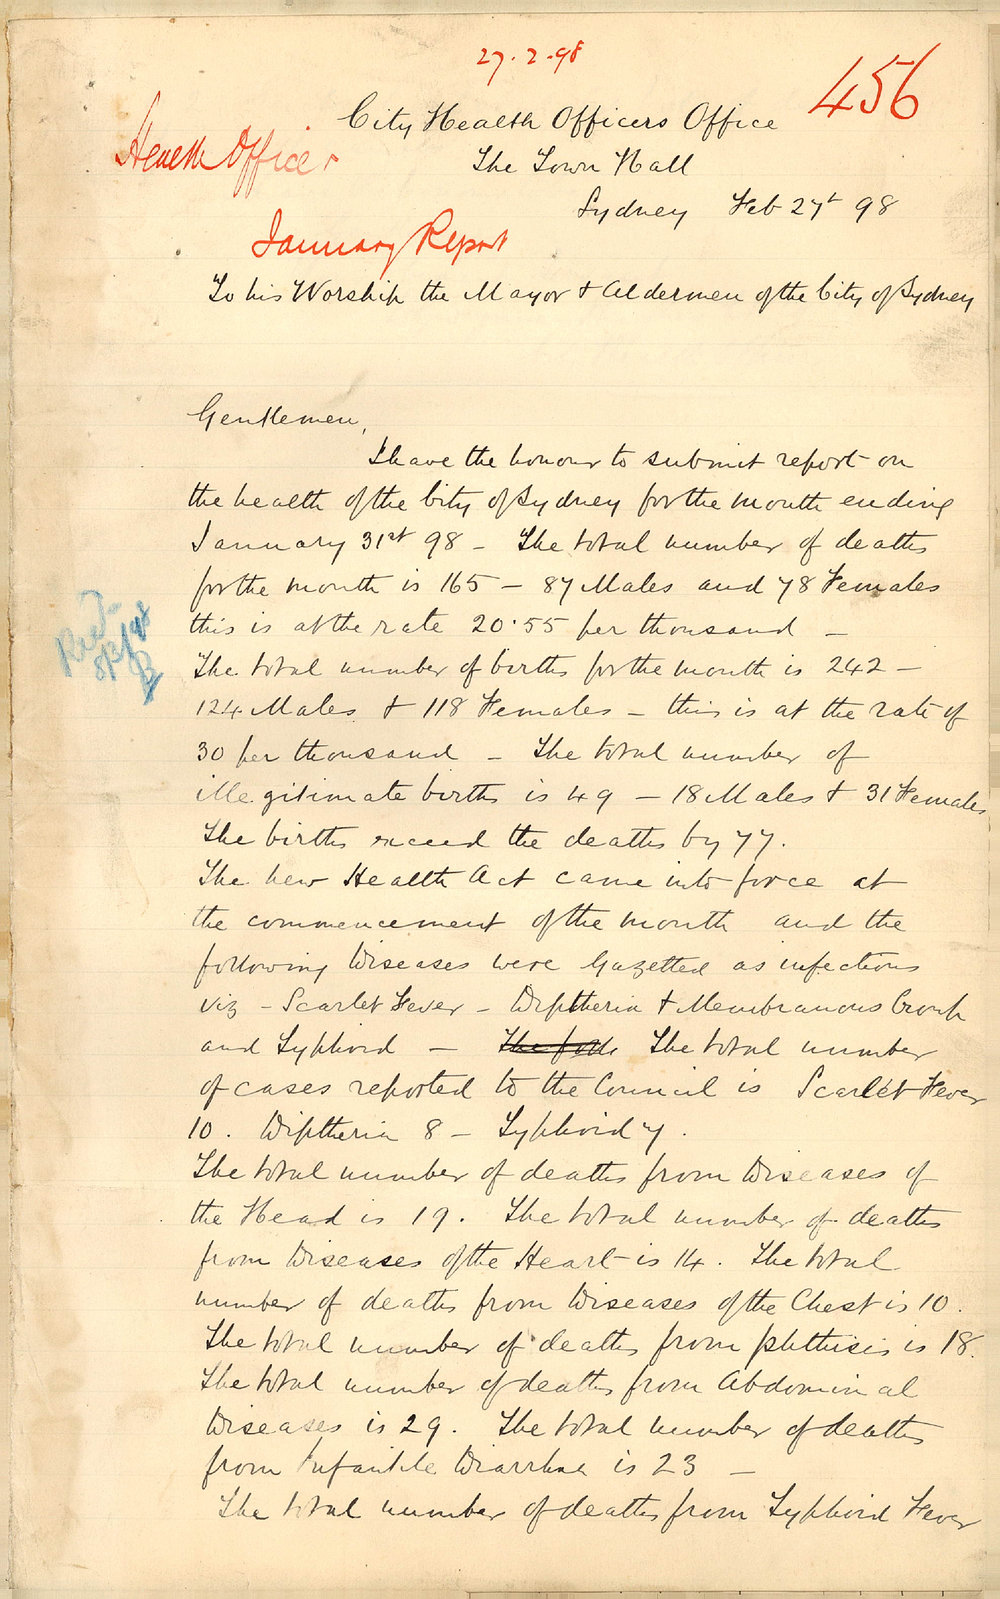 27.2.98
456
City Health Officers Office
Health Officer
The Town Hall
Sydney Feb 27t 98
January Report
To his Worship the Mayor & Aldermen of the City of Sydney
Gentlemen,
I have the honour to submit report on
the health of the City of Sydney for the month ending
January 31st 98 - The total number of deaths
for the month is 165 - 87 Males and 78 Females
this is at the rate 20.55 per thousand -
The total number of births for the month is 242 -
124 Males & 118 Females - this is at the rate of
30 per thousand - The total number of
illegitimate births is 49 - 18 Males & 31 Females
The births exceed the deaths by 77.
The new Health Act came into force at
the commencement of the month and the
following Diseases were Gazetted as infectious
viz - Scarlet Fever - Diptheria & Membranous Croup
and Typhoid - The total number
of cases reported to the Council is Scarlet Fever
10. Diptheria 8 - Typhoid 7.
The total number of deaths from Diseases of
the Head is 17. The total number of deaths
from Diseases of the Heart is 14. The total
number of deaths from Diseases of the Chest is 10.
The total number of deaths from phthisis is 18.
The total number of deaths from Abdominal
Diseases is 29. The total number of deaths
from Infantile Diarrhea is 23 -
The total number of deaths from Typhoid Fever